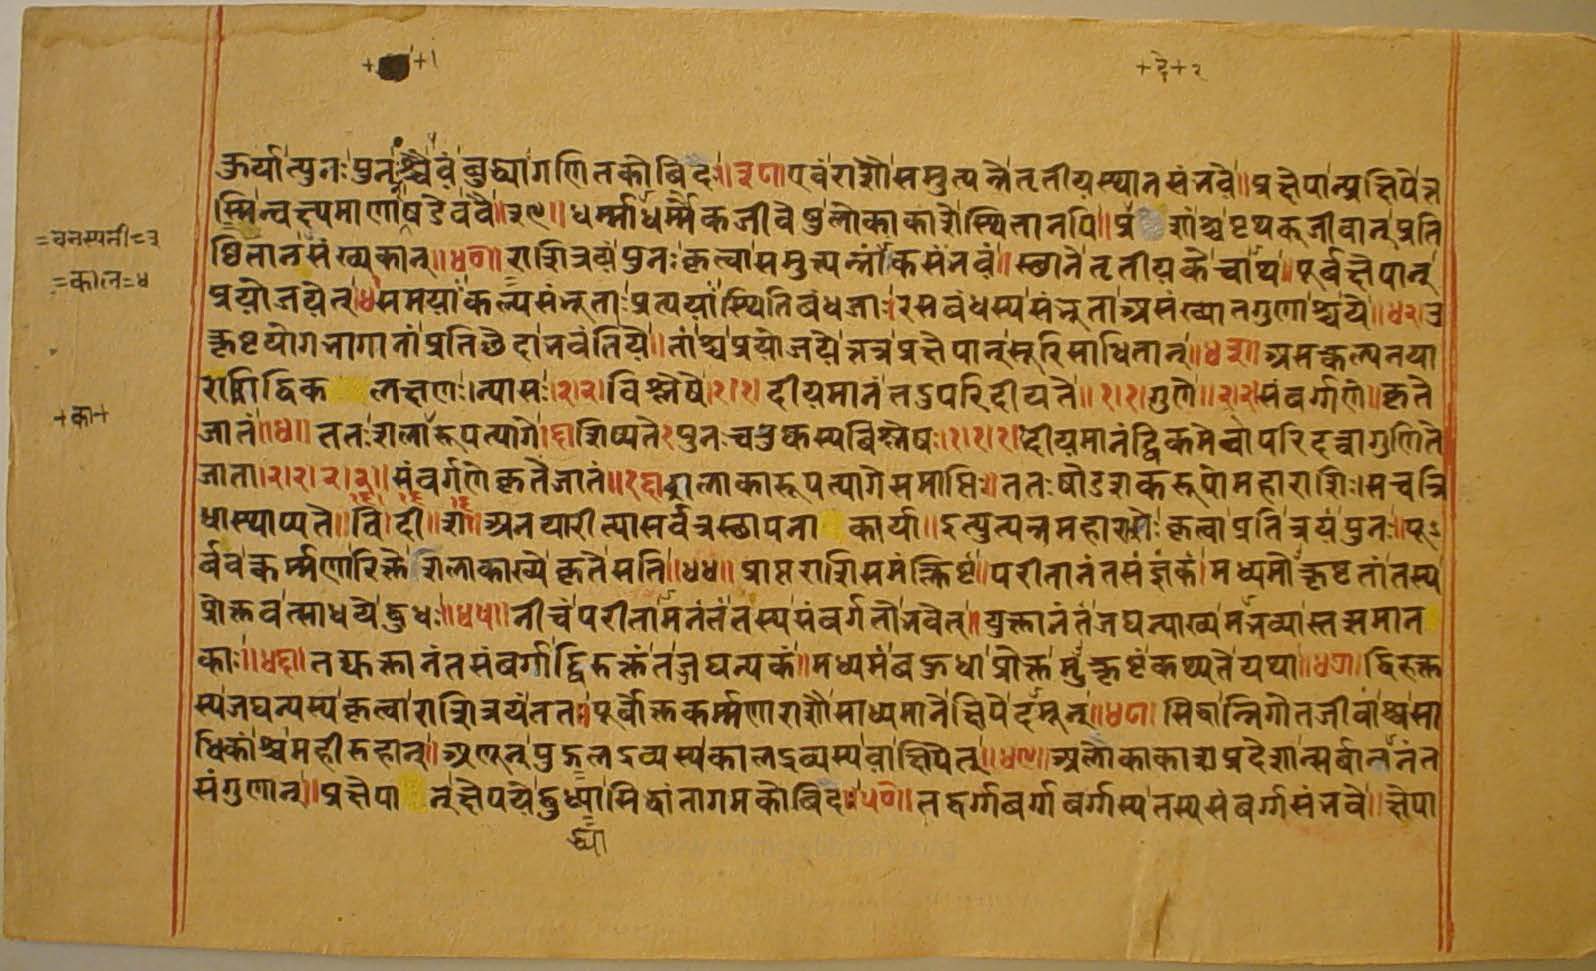 + +१
+दे+२
कुर्यात्पुनःपुनश्चैवंबुद्ध्यागणितकोविदः॥३८॥एवंराशौसमुत्पन्नेतृतीयस्थानसंभवे॥प्रक्षेपान्प्रक्षिपेत्त
स्मिन्वक्ष्यमाणांषडेवंवै॥३९॥धर्म्माधर्म्मैकजीवेषुलोकाकाशेस्थितानपि॥प्र शांश्चपृथक्जीवान्प्रति
=वनस्पती=३
ष्ठितानसंख्यकान्॥४०॥राशित्रयंपुनःकृत्वासमुत्पन्नांकसंभवं॥स्थानेतृतीयकेचाथपूर्वक्षेपान्
=काल=४
प्रयोजयेत्॥४१समयाकल्पसंभूताःप्रत्ययास्थितिबंधजाः।रसबंधस्यसंभूताअसंख्यातगुणाश्चये॥४२॥उ
त्कृष्टयोगभागानांप्रतिछेदाभवंतिये॥तांश्चप्रयोजयेत्तत्रप्रक्षेपान्सूरिभाषितान्॥४३॥असत्कल्पनया
राशिद्विक लक्षणः।न्यासः।२।२।विश्लेषे।१।१।दीयमानंतऽपरिदीयते॥१।१।गुणे॥२।२।संवर्गणे॥कृते
+का+
जातं॥४॥ततःशलारूपत्यागे।३।शिष्यते१पुनःचतुष्कस्यविश्लेषः।१।१।१।१।दीयमानंद्विकमेवोपरिदत्वागुणिते
जाता।२।२।२।२॥संवर्गणेकृतेजातं॥१६॥शलाकारूपत्यागेसमाप्तिः॥ततःषोडशकरूपोमहाराशिः।सचत्रि
धास्थाप्यते॥वि।दी॥श॥अनयारीत्यासर्वत्रस्थापना कार्या॥इत्युत्पन्नमहाराशेःकृत्वाप्रतित्रयंपुनः॥पू
र्ववत्कर्म्मणारिक्तेशिलाकाख्येकृतेसति॥४४॥प्राप्तराशिसमंक्लिष्टंपरीतानंतसंज्ञकं।मध्यमोत्कृष्टतांतस्य
प्रोक्तवत्साधयेद्बुधः॥४५॥नीचंपरीतामनंतंतस्यसंवर्गतोभवेत्॥युक्तानंतंजघन्याख्यमभव्यास्तत्समान
काः॥४६॥तद्युक्तानंतसंवर्गाद्विरुक्तंतज्जघन्यकं॥मध्यमंबहुधाप्रोक्तमुत्कृष्टंकथ्यतेयथा॥४७॥द्विरुक्त
स्यजघन्यस्यकृत्वाराशित्रयंततः॥पूर्वोक्तकर्म्मणाराशौसाध्यमानेक्षिपेदमून्॥४८॥सिद्धान्निगोतजीवांश्चसा
धिकांश्चमहीरुहान्॥अणून्पुद्गलद्रव्यस्यकालद्रव्यस्यवाक्षिपेत्॥४९॥अलोकाकाशप्रदेशान्सर्वानंत
संगुणान्॥प्रक्षेपा न्क्षेपयेद्बुध्यासिद्धांतागमकोविदः॥५०॥तद्वर्गवर्गवर्गस्यतस्यसंवर्गसंभवे॥क्षेपा
ध्या